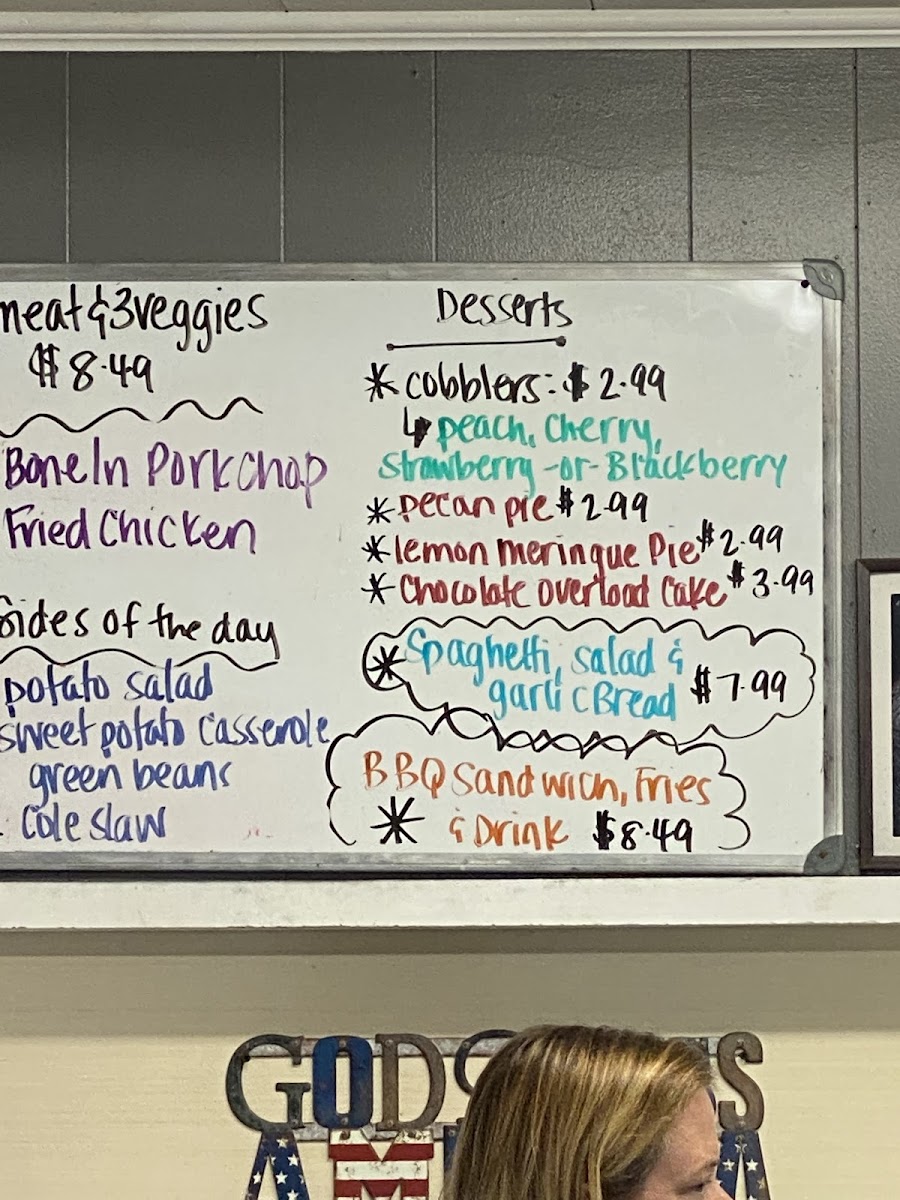 meat & 3 veggies
$8.49
Bone In Pork Chop
Fried Chicken
Sides of the day
potato salad
sweet potato casserole
green beans
Cole slaw
Desserts
* cobblers: $2.99
↳ peach, cherry,
strawberry -or- Blackberry
* Pecan pie $2.99
* lemon meringue Pie $2.99
* Chocolate overload Cake $3.99
* Spaghetti, salad &
garlic Bread $7.99
BBQ Sandwich, Fries
* & Drink $8.49
GOD S
AM A